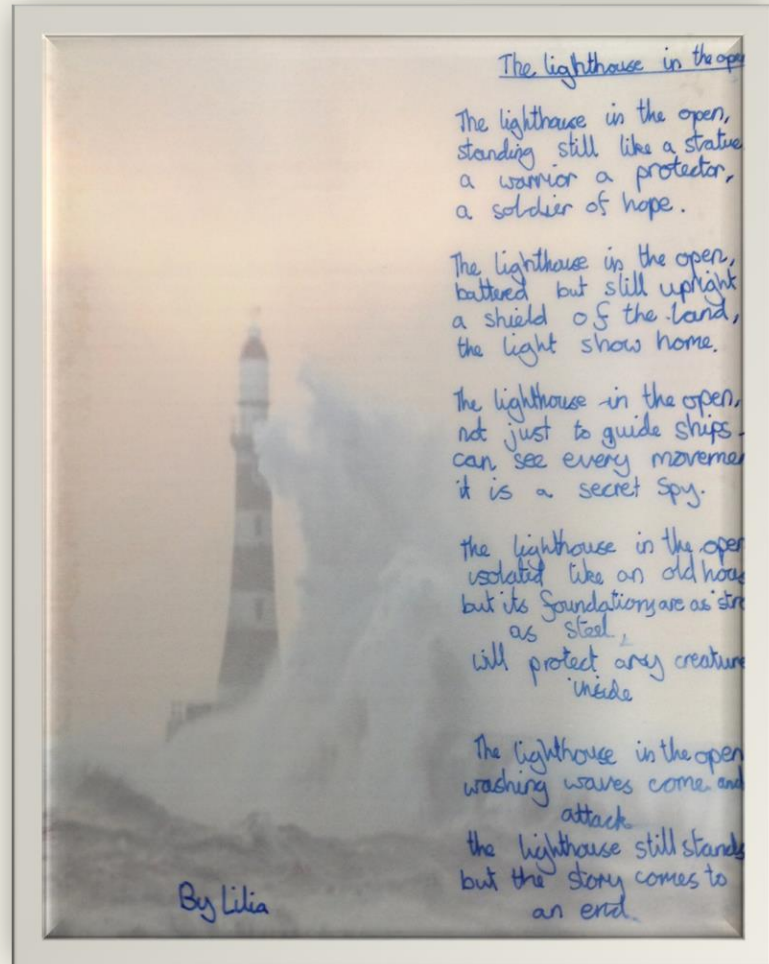 The lighthouse in the open
The lighthouse in the open,
standing still like a statue
a warrior a protector,
a soldier of hope.
The lighthouse in the open,
battered but still upright
a shield of the land,
the light show home.
The lighthouse in the open,
not just to guide ships
can see every
it is a secret spy.
the lighthouse in the open
isolated like an old
but its foundations are as
as steel,
will protect any creature
inside
The lighthouse in the open
washing waves come and
attack
the lighthouse still stands
but the story comes to
an end.
By Lilia